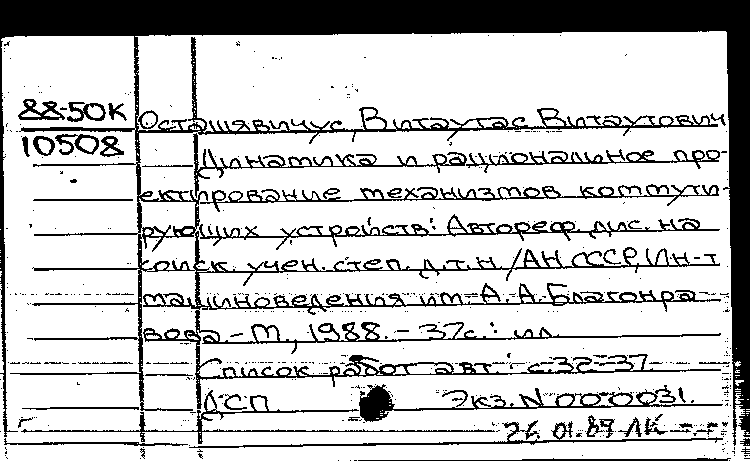 88-50К
10508
Осташявичус, Витаутас Витаутович
Динамика и рациональное про-
ектирование механизмов коммути-
рующих устройств: Автореф. дис. на
соиск. учен. степ. д.т.н. /АН СССР, Ин-т
машиноведения им. А.А. Благонра-
вова. - М., 1988. - 37с.: ил.
Список работ авт.: с.32-37.
ДСП Экз. N 000031.
26.01.89 ЛК